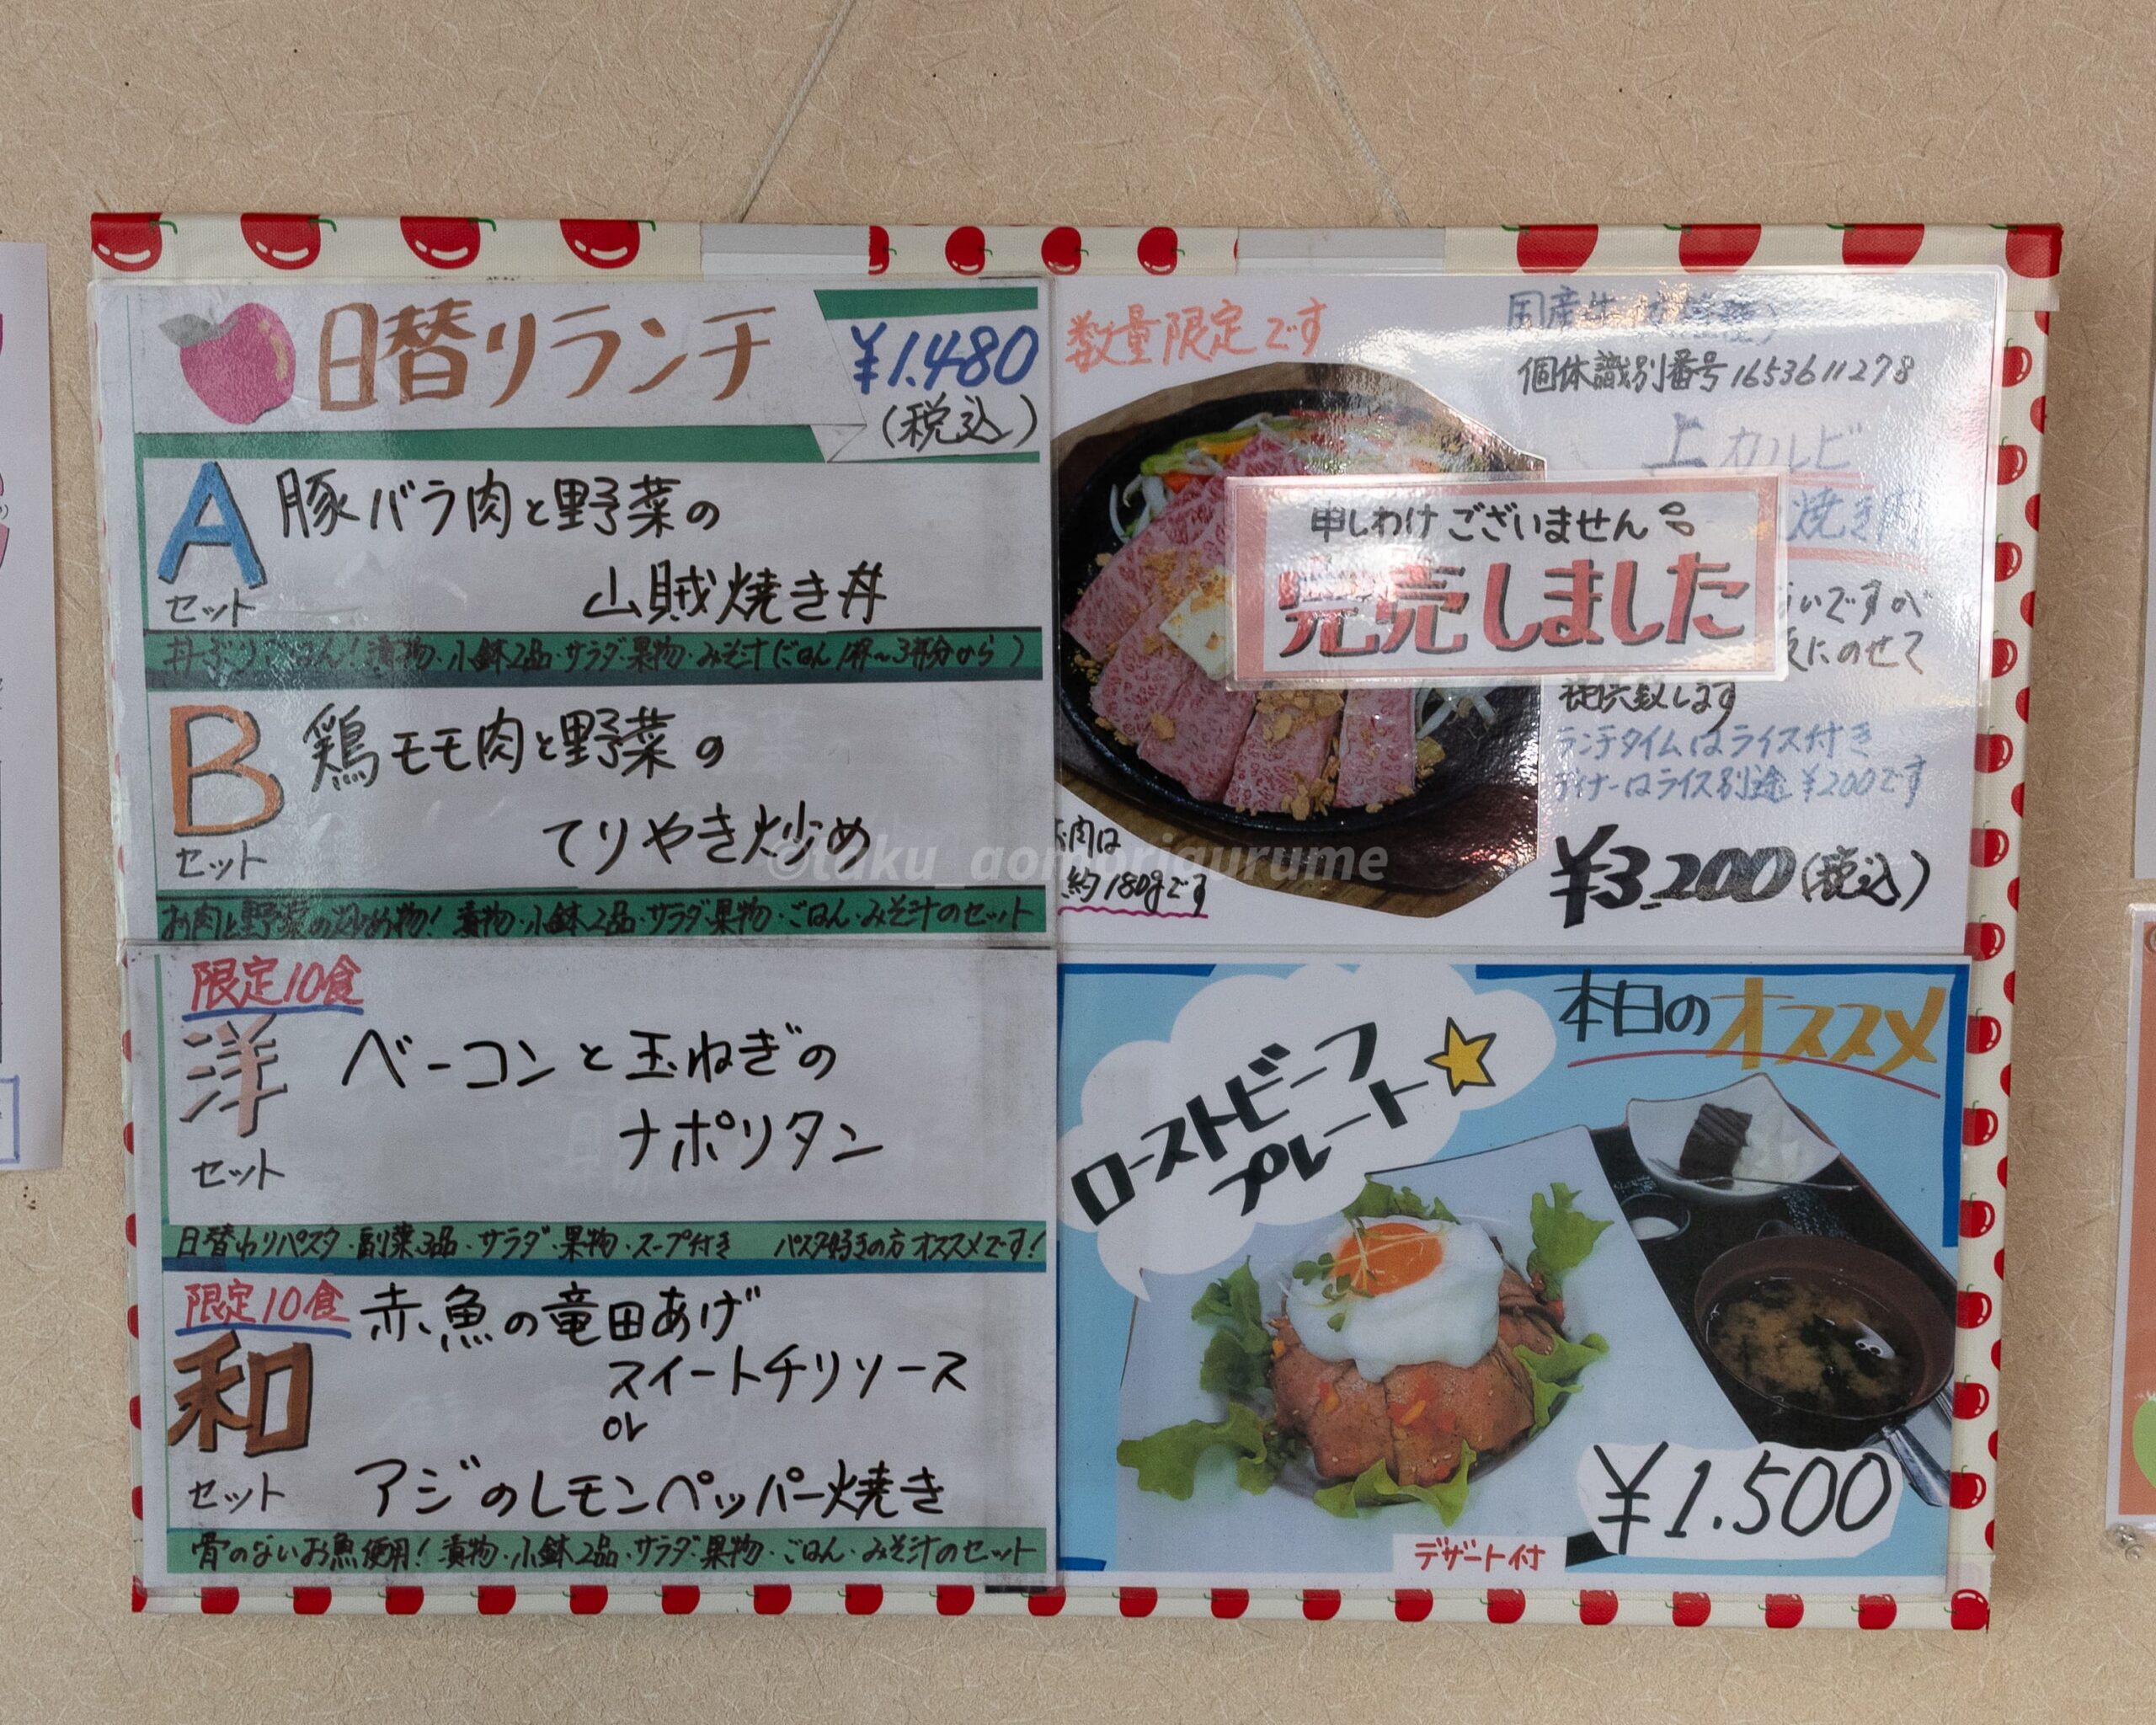 日替りランチ
¥1.480
(税込)
A
セット
豚バラ肉と野菜の
山賊焼き丼
丼ぶりごはん!漬物・小鉢2品・サラダ・果物・みそ汁(ごはん1杯〜3杯分から)
B
セット
鶏モモ肉と野菜の
てりやき炒め
お肉と野菜の炒め物!漬物・小鉢2品・サラダ・果物・ごはん・みそ汁のセット
限定10食
洋
セット
ベーコンと玉ねぎの
ナポリタン
日替わりパスタ・副菜3品・サラダ・果物・スープ付き パスタ好きの方オススメです!
限定10食
和
セット
赤魚の竜田あげ
スイートチリソース
or
アジのレモンペッパー焼き
骨のないお魚使用!漬物・小鉢2品・サラダ・果物・ごはん・みそ汁のセット
数量限定です
国産牛
個体識別番号1653611278
上カルビ
焼き肉
申しわけございません
完売しました
いですが
にのせて
提供致します
ランチタイムはライス付き
ディナーはライス別途¥200です
お肉は
約180gです
¥3,200(税込)
©taku_aomorigurume
本日のオススメ
ローストビーフ
プレート
¥1.500
デザート付